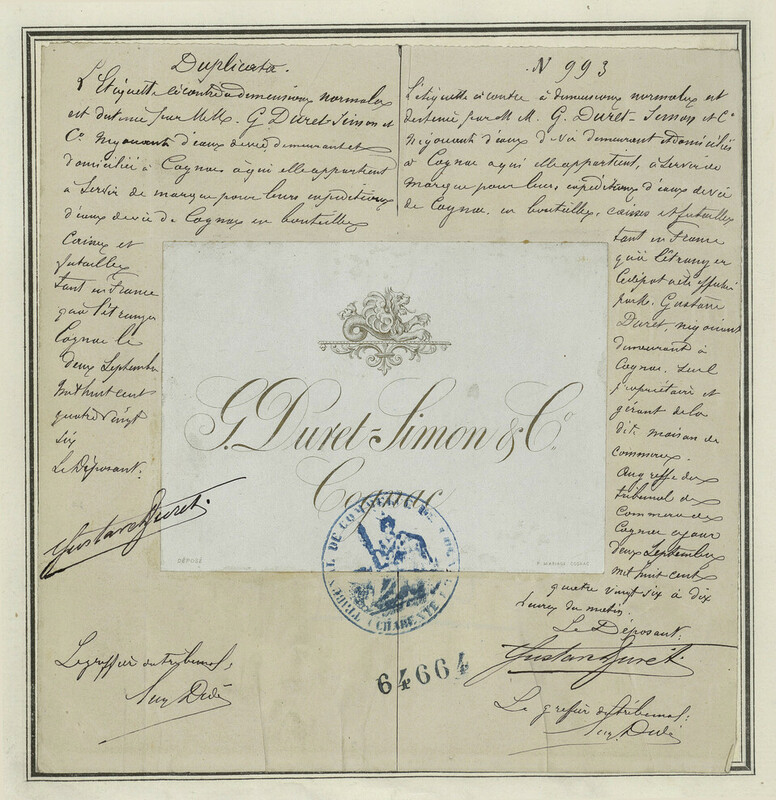 Duplicata.
L'Etiquette ci contre à dimensions normales
est destinée par M.M. G. Duret-Simon et
Cie Négociants d'eaux de vie demeurant et
domiciliés à Cognac à qui elle appartient
à servir de marque pour leurs expéditions
d'eaux de vie de Cognac en bouteilles
Caisses et
futailles
tant en France
qu'à l'étranger
Cognac le
deux Septembre
Mil huit cent
quatre vingt
six
Le Déposant:
Gustave Duret
Le greffier du tribunal:
N 993
L'étiquette ci contre à dimensions normales est
destinée par M.M. G. Duret-Simon et Cie
Négociants d'eaux de vie demeurant et domiciliés
à Cognac à qui elle appartient, à servir de
marque pour leurs expéditions d'eaux de vie
de Cognac en bouteilles, caisses et futailles
tant en France
qu'à l'étranger
Ce dépôt a été effectué
par M. Gustave
Duret, négociant
demeurant à
Cognac, seul
propriétaire et
gérant de la
dite maison de
commerce.
Au greffe du
tribunal de
Commerce de
Cognac ce jour
deux Septembre
mil huit cent
quatre vingt six à dix
heures du matin.
Le Déposant:
Gustave Duret
Le greffier du tribunal:
G. Duret-Simon & Co.
Cognac
DÉPOSÉ
TRIBUNAL DE COMMERCE DE COGNAC
(CHARENTE)
64664